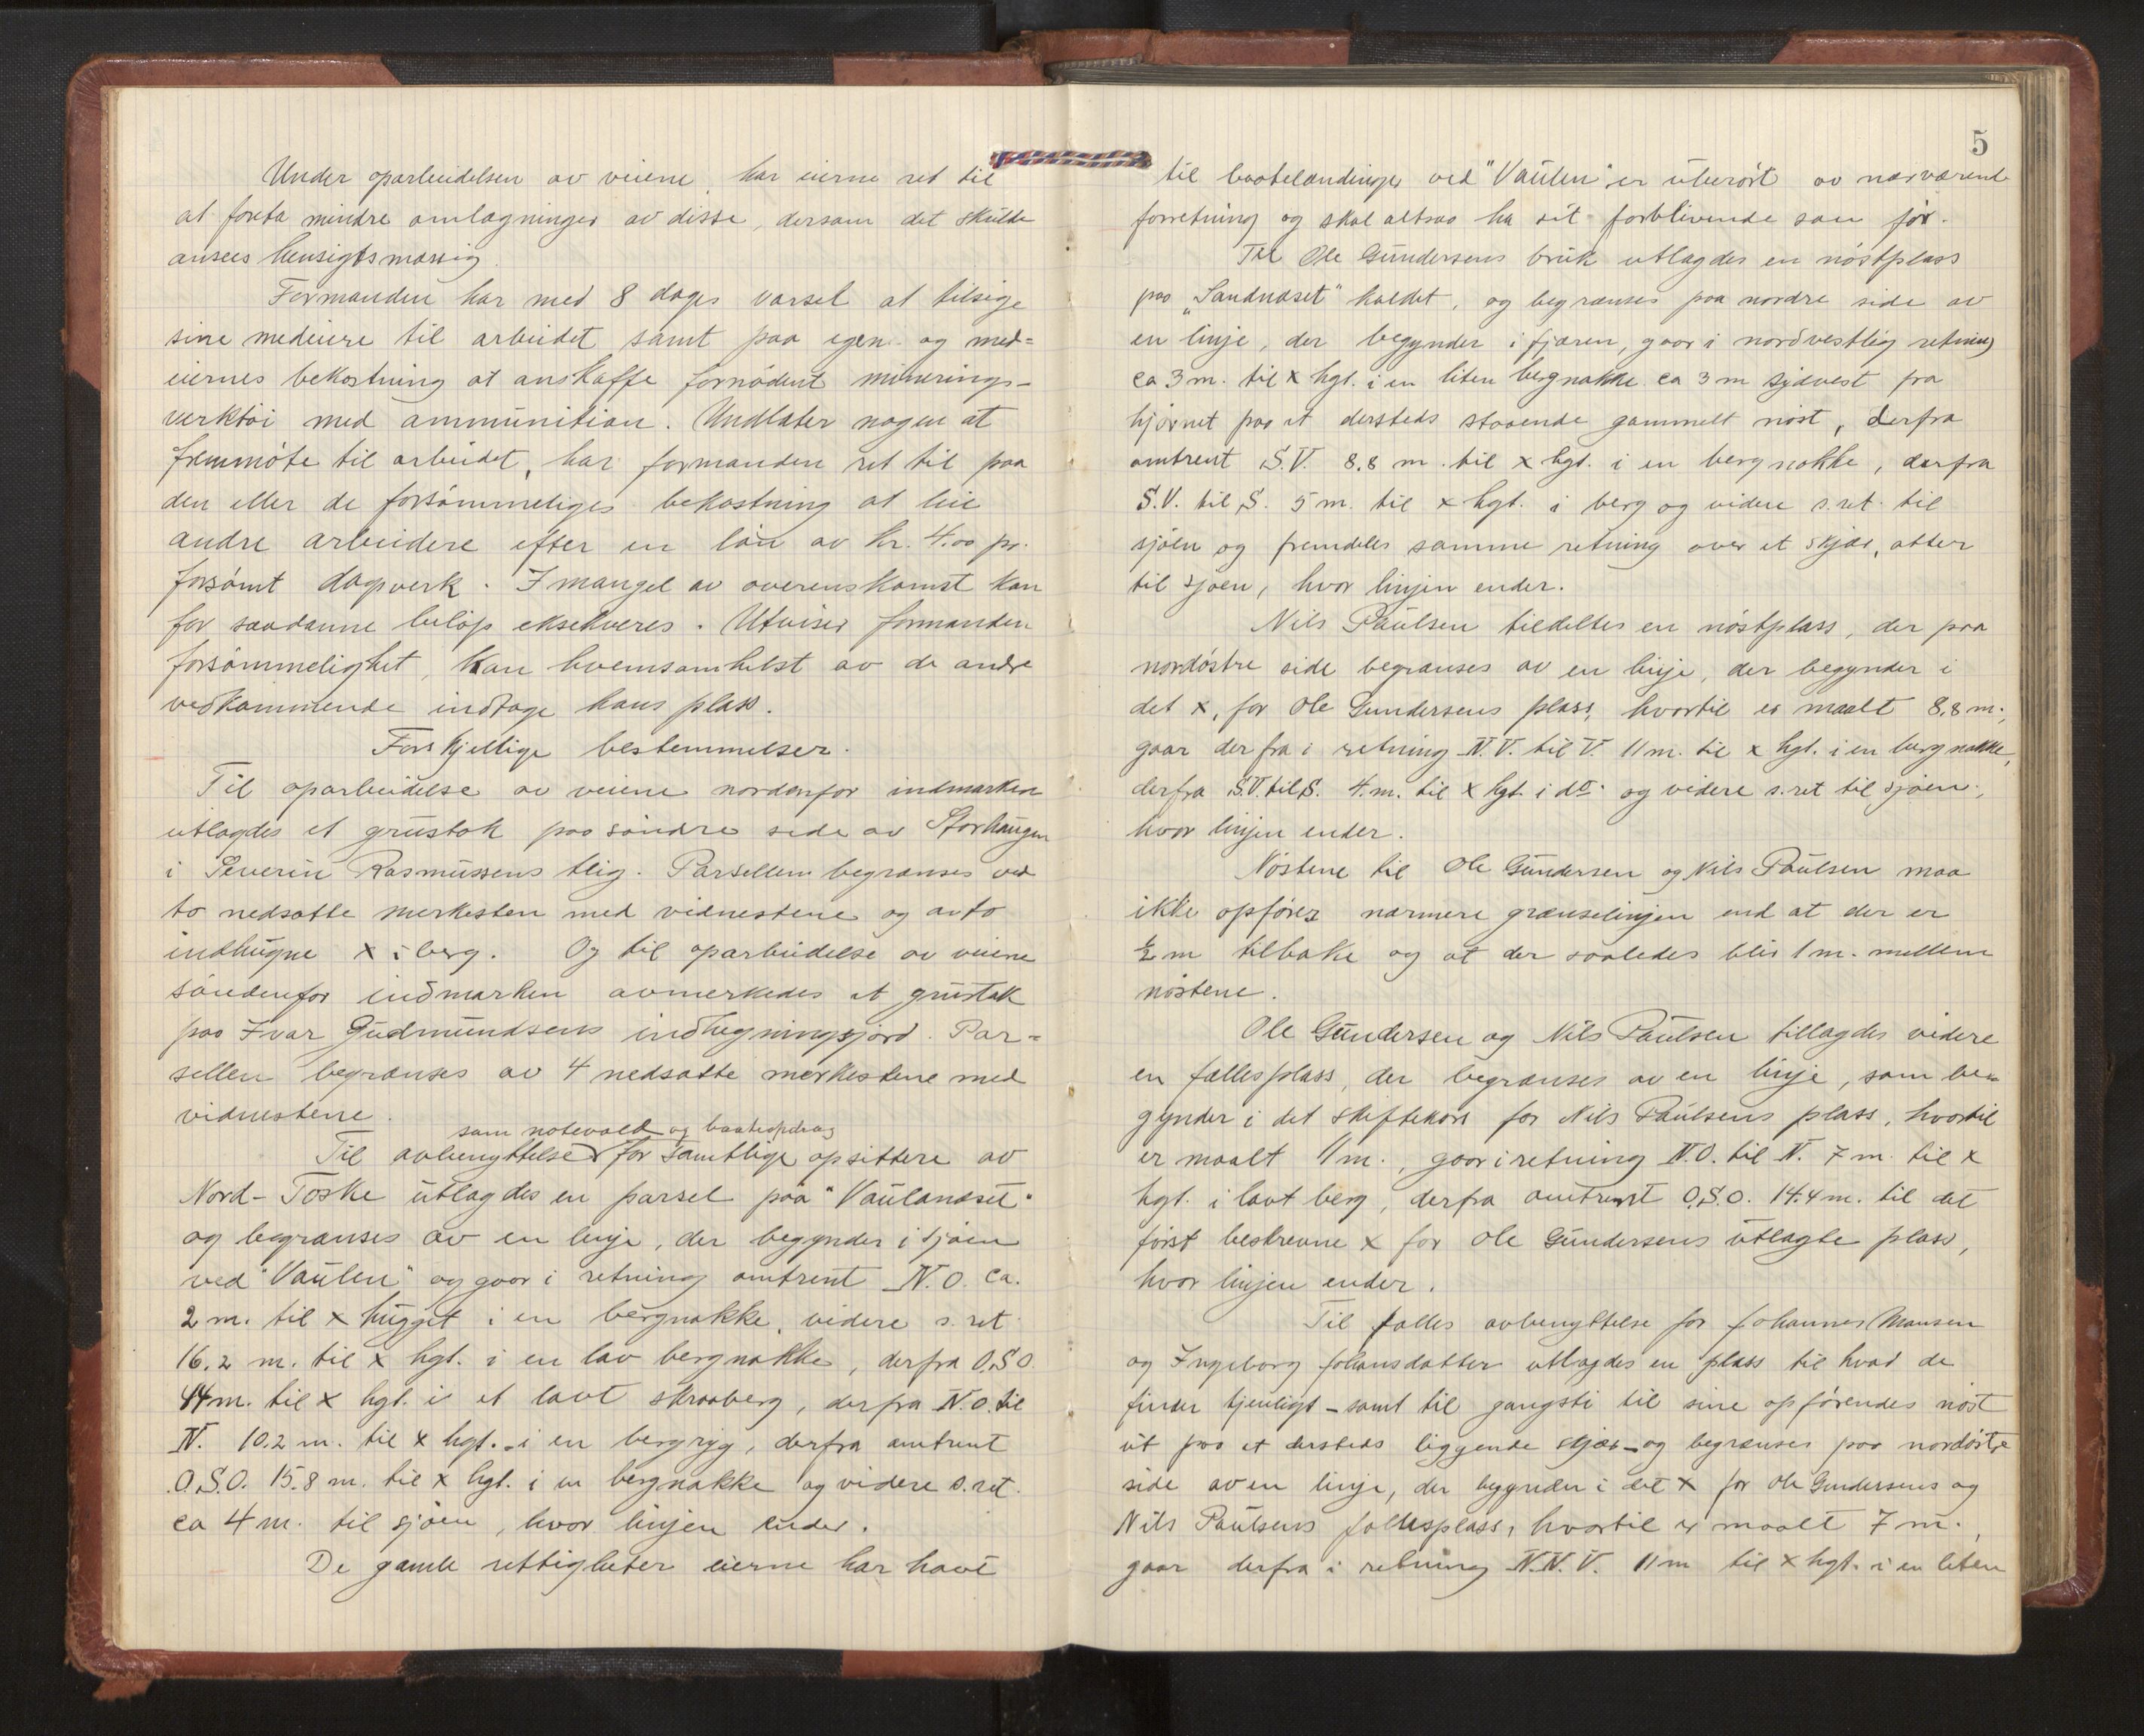 Under oparbeidelsen av veiene har eierne ret til
at foreta mindre omlægninger av disse, dersom det skulde
ansees hensigtsmæssig.
Formanden har med 8 dages varsel at tilsige
sine medeiere til arbeidet samt paa egen og med=
eiernes bekostning at anskaffe fornödent minerings-
verktöi med ammunition. Undlater nogen at
fremmöte til arbeidet, har formanden ret til paa
den eller de forsömmeliges bekostning at leie
andre arbeidere efter en lön av kr. 4.00 pr.
forsömt dagverk. I mangel av overenskomst kan
for saadanne belöp eksekveres. Utviser formanden
forsömmelighet, kan hvemsomhelst av de andre
vedkommende indtage hans plass.
Forskjellige bestemmelser.
Til oparbeidelse av veiene nordenfor indmarken
utlagdes et grustak paa söndre side av Storhaugen
i Severin Rasmussens teig. Parsellen begrænses ved
to nedsatte merkesten med vidnestene og av to
indhugne x i berg. Og til oparbeidelse av veiene
söndenfor indmarken avmerkedes et grustak
paa Ivar Gudmundsens indhegningsjord. Par=
sellen begrænses av 4 nedsatte merkestene med
vidnestene.
som notevold og baatopdrag
Til avbenyttelse for samtlige opsittere av
Nord-Toske utlagdes en parsel paa "Vaulanæset"
og begrænses av en linje, der begynder i sjöen
ved "Vaulen" og gaar i retning omtrent N.O. ca.
2 m. til x hugget i en bergnakke, videre s. ret
16.2 m. til x hgt. i en lav bergnakke, derfra O.S.O.
44 m. til x hgt. i et lavt skraaberg, derfra N.O. til
N. 10.2 m. til x hgt. i en bergryg, derfra omtrent
O.S.O. 15.8 m. til x hgt. i en bergnakke og videre s. ret.
ca 4 m. til sjöen, hvor linjen ender.
De gamle rettigheter eierne har havt
5
til baatelændinger ved "Vaulen" er uberört av nærværende
forretning og skal altsaa ha sit forblivende som för.
Til Ole Gundersens bruk utlagdes en nöstplass
paa "Sandnæset" kaldet, og begrænses paa nordre side av
en linje, der begynder i fjæren, gaar i nordvestlig retning
ca 3 m. til x hgt. i en liten bergnakke ca 3 m sydvest fra
hjörnet paa et dersteds staaende gammelt nöst, derfra
omtrent S.V. 8.8 m. til x hgt. i en bergnakke, derfra
S.V. til S. 5 m. til x hgt. i berg og videre s. ret. til
sjöen og fremdeles samme retning over et skjær, atter
til sjöen, hvor linjen ender.
Nils Paulsen tildeltes en nöstplass, der paa
nordöstre side begrænses av en linje, der begynder i
det x, for Ole Gundersens plass, hvortil er maalt 8.8 m.,
gaar derfra i retning N.V. til V. 11 m. til x hgt. i en bergnakke,
derfra S.V. til S. 4. m. til x hgt. i do. og videre s. ret til sjöen,
hvor linjen ender.
Nöstene til Ole Gundersen og Nils Paulsen maa
ikke opföres nærmere grænselinjen end at der er
½ m tilbake og at der saaledes blir 1 m. mellem
nöstene.
Ole Gundersen og Nils Paulsen tillagdes videre
en fællesplass, der begrænses av en linje, som be=
gynder i det skiftekors for Nils Paulsens plass, hvortil
er maalt 11 m., gaar i retning N.O. til N. 7 m. til x
hgt. i lavt berg, derfra omtrent O.S.O. 14.4 m. til det
först beskrevne x for Ole Gundersens utlagte plass,
hvor linjen ender.
Til fælles avbenyttelse for Johannes Monsen
og Ingeborg Johansdatter utlagdes en plass til hvad de
finder tjenligt - samt til gangsti til sine opförendes nöst
ut paa et dersteds liggende skjær - og begrænses paa nordöstre
side av en linje, der begynder i det x for Ole Gundersens og
Nils Paulsens fællesplass, hvortil er maalt 7 m.,
gaar derfra i retning N.N.V. 11 m til x hgt. i en liten